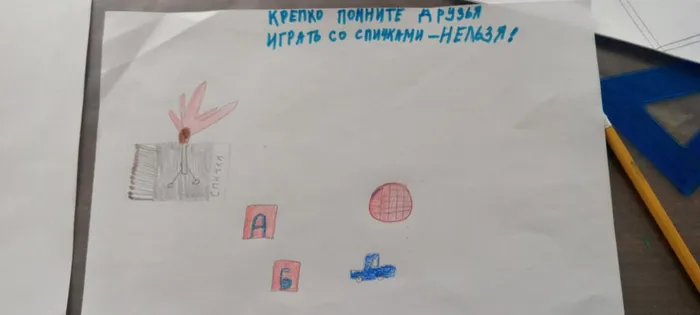 КРЕПКО ПОМНИТЕ ДРУЗЬЯ
ИГРАТЬ СО СПИЧКАМИ – НЕЛЬЗЯ!
СПИЧКИ
А
Б